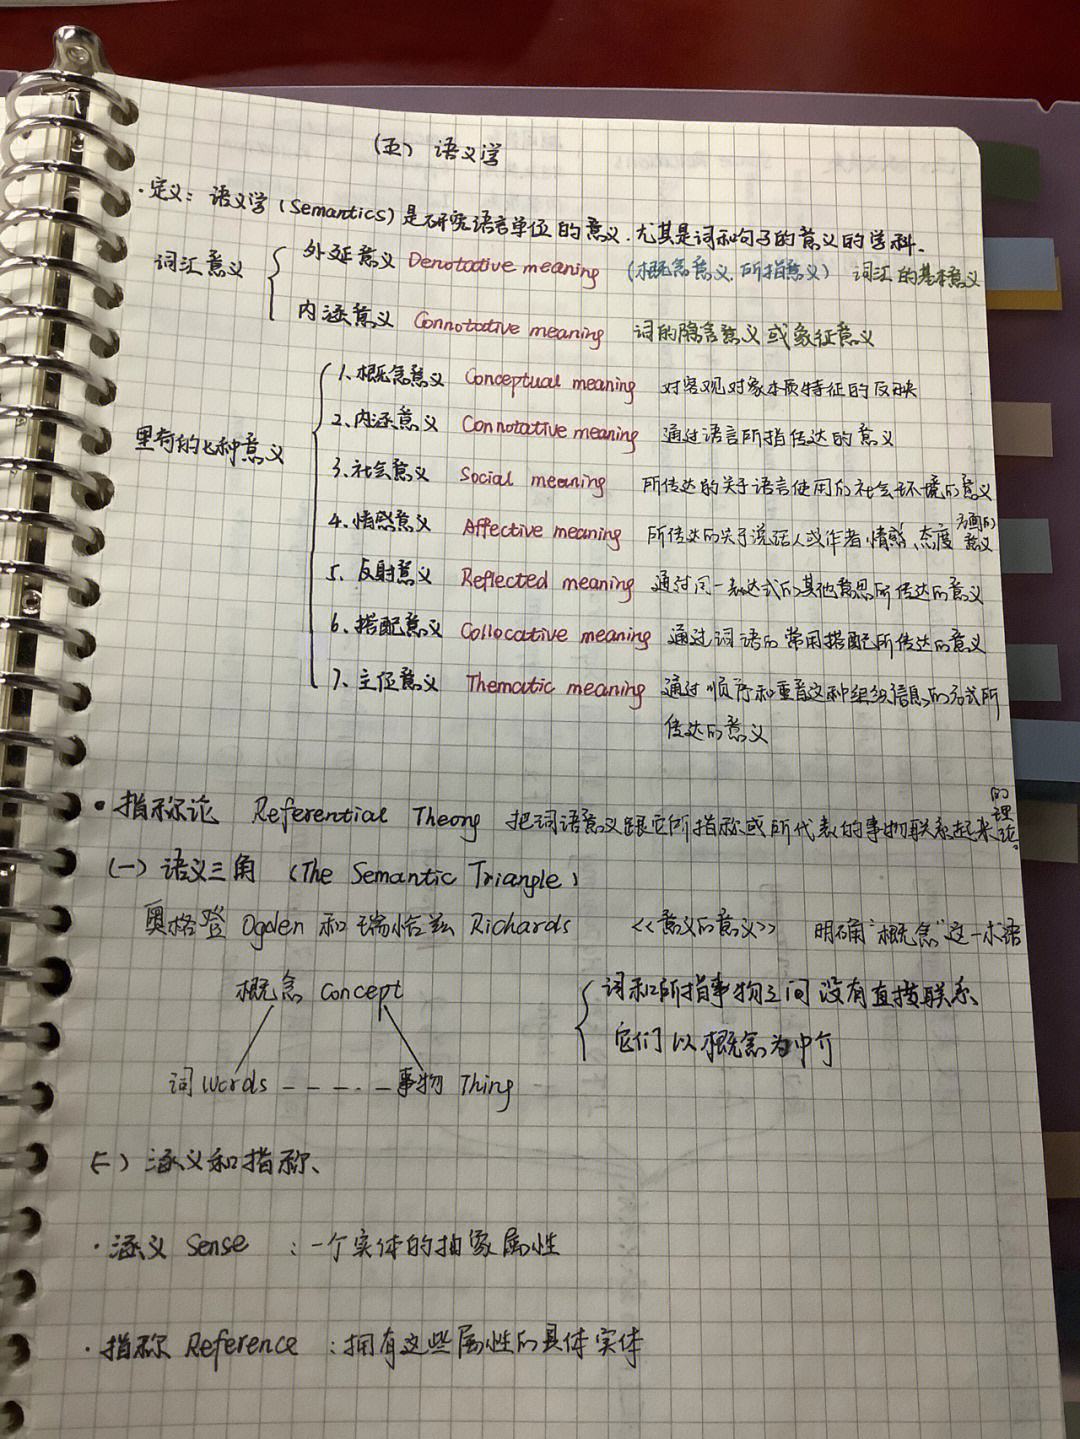 （五）语义学
·定义：语义学（Semantics）是研究语言单位的意义.尤其是词和句子的意义的学科.
词汇意义
外延意义 Denotative meaning （概念意义、所指意义） 词汇的基本意义
内涵意义 Connotative meaning 词的隐含意义或象征意义
里奇的七种意义
1、概念意义 Conceptual meaning 对客观对象本质特征的反映
2、内涵意义 Connotative meaning 通过语言所指传达的意义
3、社会意义 Social meaning 所传达的关于语言使用的社会环境的意义
4、情感意义 Affective meaning 所传达的关于说话人或作者情感、态度方面的意义
5、反射意义 Reflected meaning 通过同一表达式的其他意思所传达的意义
6、搭配意义 Collocative meaning 通过词语的常用搭配所传达的意义
7、主位意义 Thematic meaning 通过顺序和重音这种组织信息的方式所
传达的意义
·指称论 Referential Theory 把词语意义跟它所指称或所代表的事物联系起来的理论。
（一）语义三角 （The Semantic Triangle）
奥格登 Ogden 和瑞恰兹 Richards <<意义的意义>> 明确"概念"这一术语
概念 Concept
词和所指事物之间没有直接联系
它们以概念为中介
词 Words - - - - - 事物 Thing
（二）涵义和指称、
·涵义 Sense ：一个实体的抽象属性
·指称 Reference ：拥有这些属性的具体实体